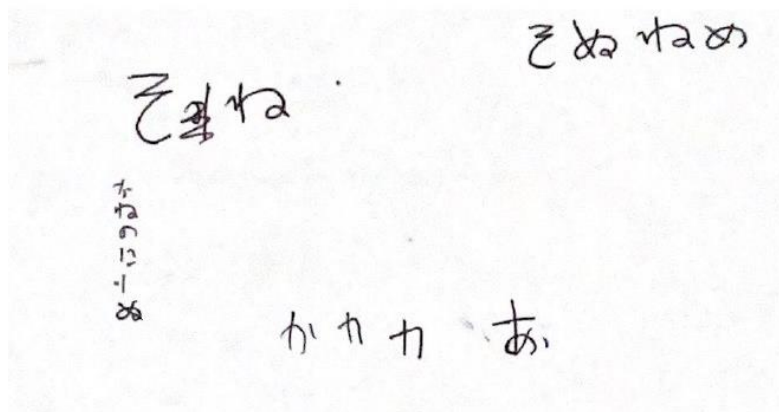 そぬねめ
そ ね
なねのに ぬ
かカカ あ